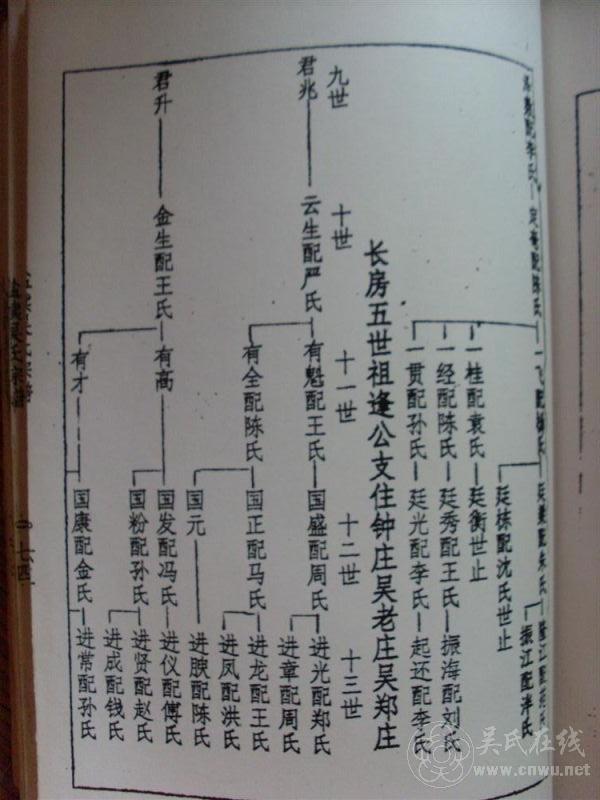 配李氏
配陈氏
振江配洋氏
廷栋配沈氏世止
一桂配袁氏
廷衡世止
一经配陈氏
廷秀配王氏
振海配刘氏
一贯配孙氏
廷光配李氏
起还配李氏
长房五世祖逢公支住钟庄吴老庄吴郑庄
九世
十世
十一世
十二世
十三世
君兆
云生配严氏
有魁配王氏
国盛配周氏
进光配郑氏
进章配周氏
有全配陈氏
国正配马氏
进龙配王氏
进凤配洪氏
国元
进腴配陈氏
君升
金生配王氏
有高
国发配冯氏
进仪配傅氏
国粉配孙氏
进贤配赵氏
进成配钱氏
有才
国康配金氏
进常配孙氏
吴氏在线
www.cnwu.net